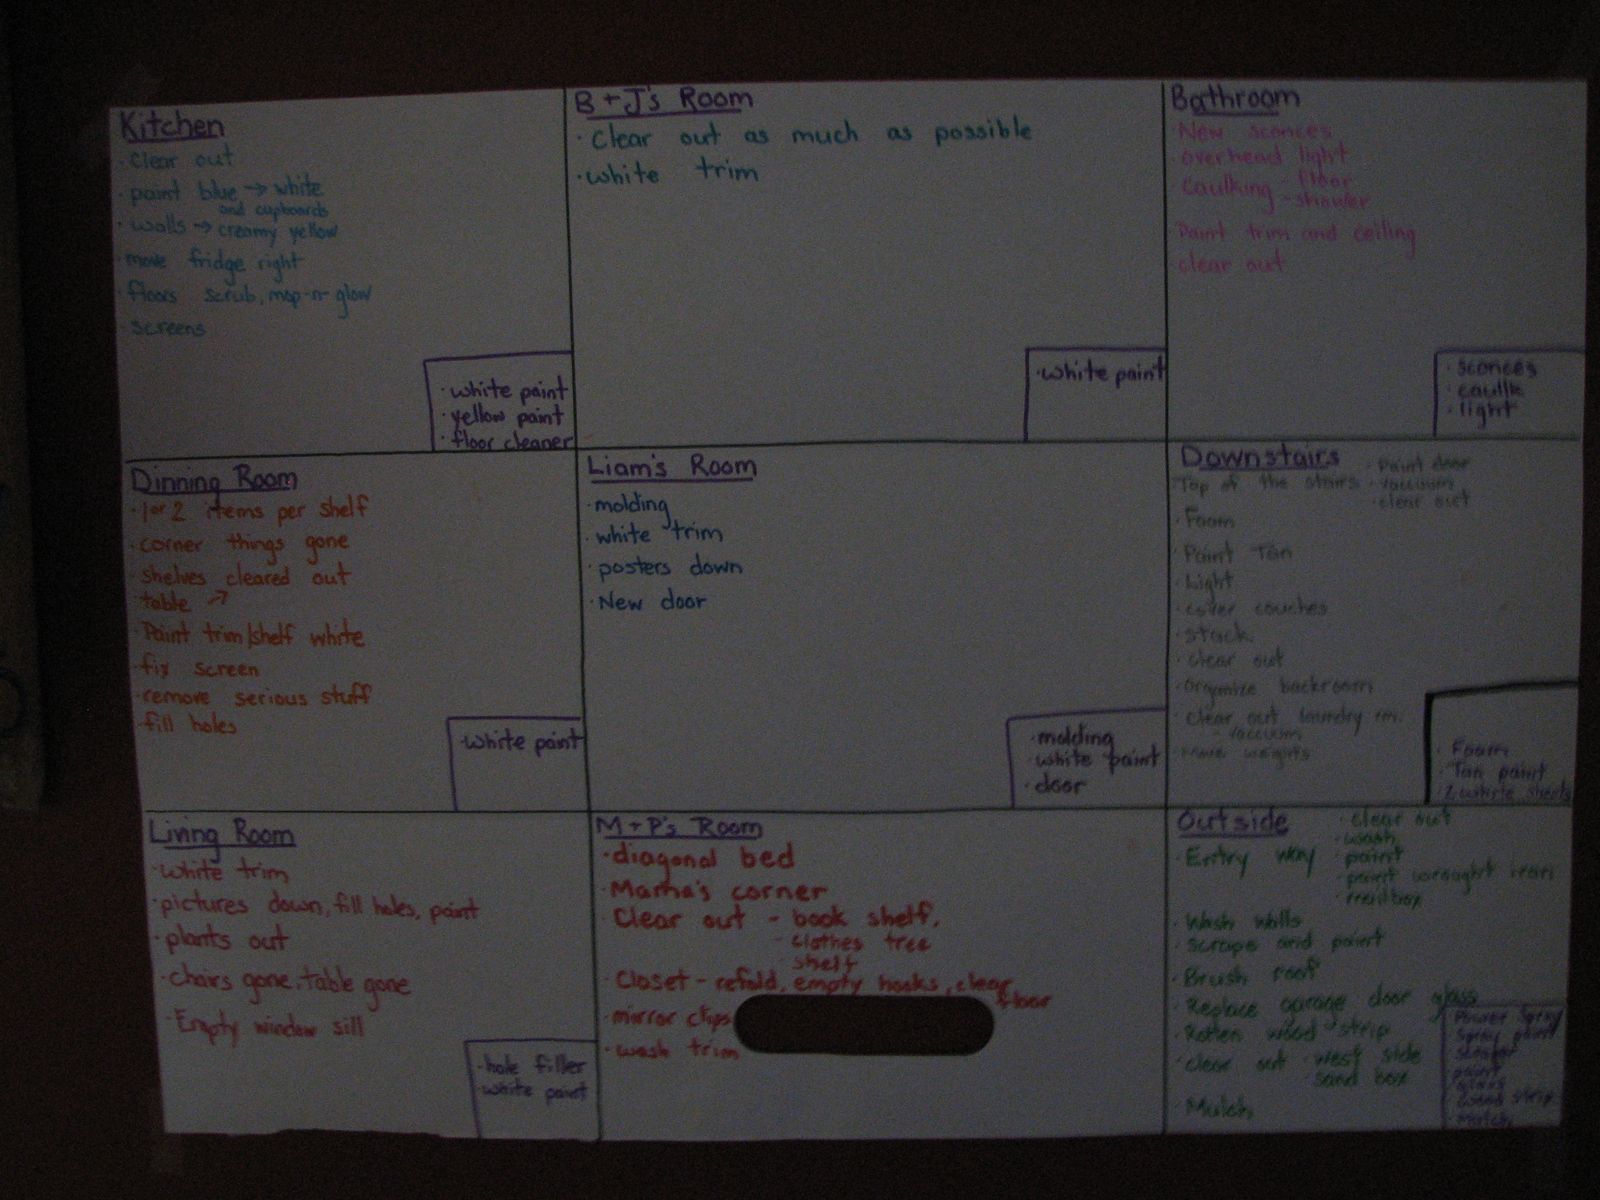 Kitchen
· clear out
· paint blue → white
and cupboards
· walls → creamy yellow
· move fridge right
· floors scrub, mop-n-glow
· screens
· white paint
· yellow paint
· floor cleaner
B + J's Room
· Clear out as much as possible
· white trim
· white paint
Bathroom
· New sconces
· overhead light
· caulking - floor
- shower
· Paint trim and ceiling
· clear out
· sconces
· caulk
· light
Dinning Room
· 1 or 2 items per shelf
· corner things gone
· shelves cleared out
table →
· Paint trim/shelf white
· fix screen
· remove serious stuff
· fill holes
· white paint
Liam's Room
· molding
· white trim
· posters down
· New door
· molding
· white paint
· door
Downstairs
Top of the stairs · Paint door
· vacuum
· clear out
· Foam
· Paint Tan
· Light
· cover couches
· stack
· clear out
· Organize backroom
· Clear out laundry rm.
- vaccuum
· Move weights
· Foam
· Tan paint
· 2 white sheets
Living Room
· white trim
· pictures down, fill holes, paint
· plants out
· chairs gone, table gone
· Empty window sill
· hole filler
· white paint
M + P's Room
· diagonal bed
· Mama's corner
· Clear out - book shelf,
- clothes tree
- shelf
· Closet - refold, empty hooks, clear
floor
· mirror clips
· wash trim
Outside
· Entry way · clear out
· wash
· paint
· paint wrought iron
· mailbox
· Wash walls
· scrape and paint
· Brush roof
· Replace garage door glass
· Rotten wood strip
· clear out · west side
· sand box
· Mulch
Power Spray
Spray paint
paint
glass
· wood strip
· mulch